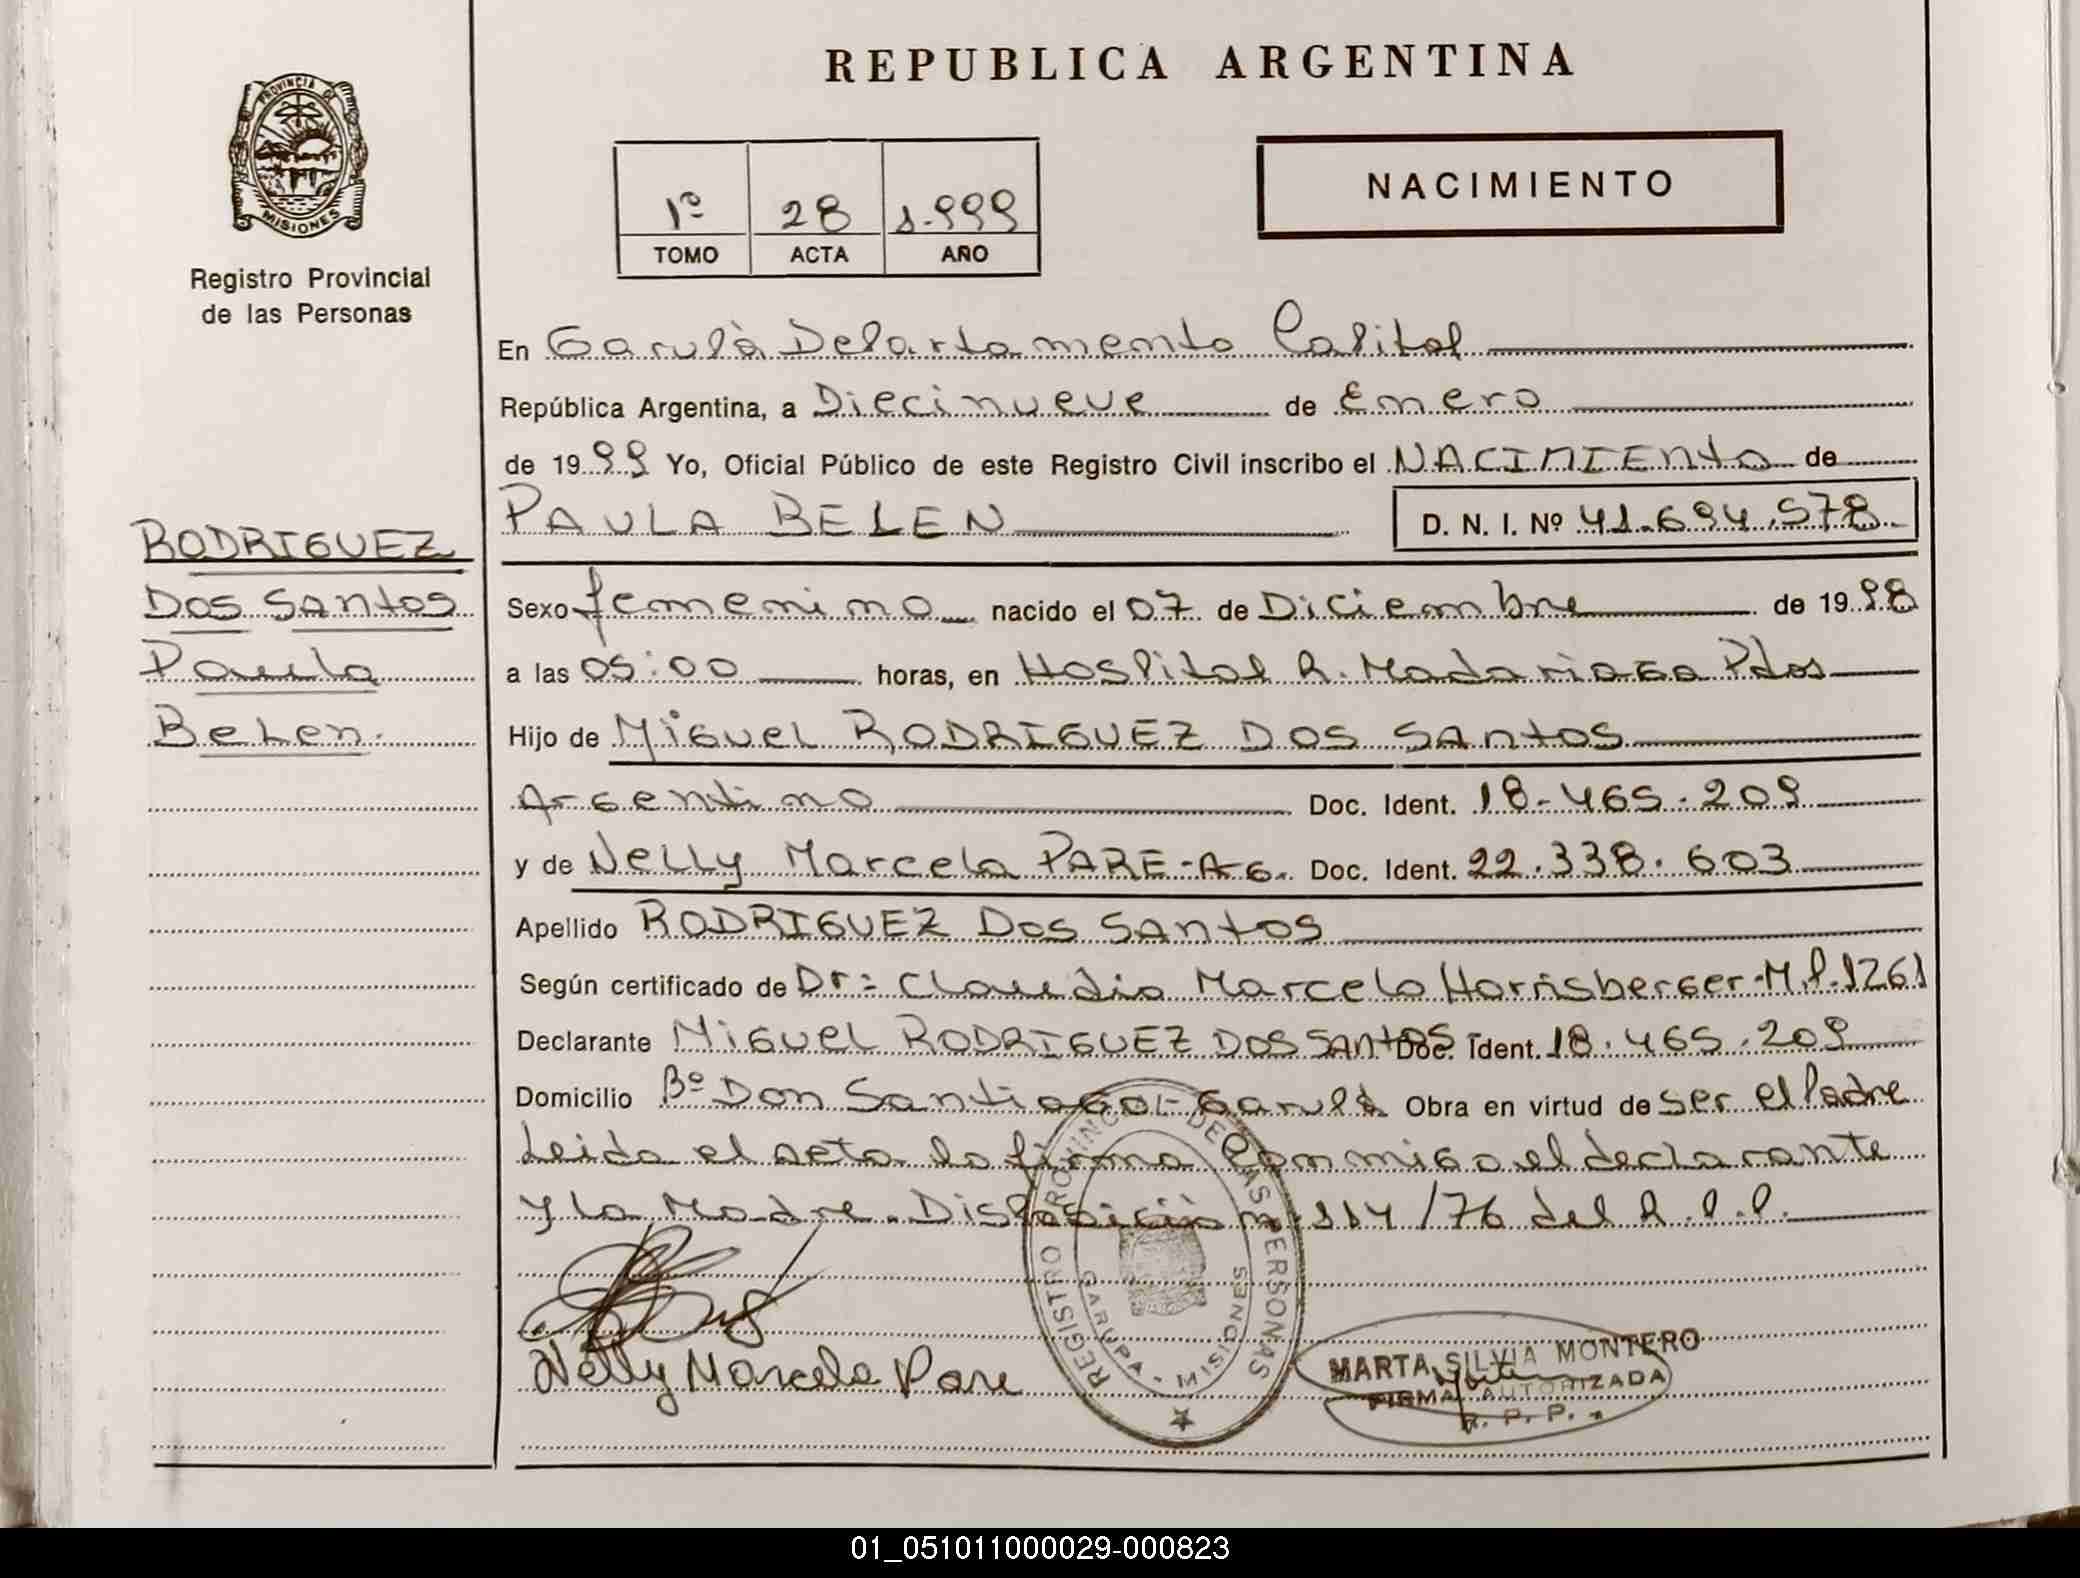 REPUBLICA ARGENTINA
PROVINCIA DE
MISIONES
Registro Provincial
de las Personas
1º 28 1.999
TOMO ACTA AÑO
NACIMIENTO
En Garupà Departamento Capital
República Argentina, a Diecinueve de Enero
de 1999 Yo, Oficial Público de este Registro Civil inscribo el NACIMIENto de
PAULA BELEN D. N. I. Nº 41.694.578
RODRIGUEZ
Dos Santos
Paula
Belen.
Sexo femenino nacido el 07 de Diciembre de 1998
a las 05:00 horas, en Hospital R. Madariaga Pdos
Hijo de Miguel RODRIGUEZ DOS SAntos
Argentino Doc. Ident. 18-465.209
y de Nelly Marcela PARE-Ag. Doc. Ident. 22.338.603
Apellido RODRIGUEZ Dos SAntos
Según certificado de Dr: Claudio Marcelo Horrisberger-M.P.1261
Declarante MIGUEL RODRIGUEZ DOS SANtOS Doc. Ident. 18.465.209
Domicilio Bº Don Santiago-Garupà Obra en virtud de ser el Padre
Leida el acta la firma Conmigo el declarante
y la Madre. Disposiciòn nº 114/76 del R.P.P.
Nelly Marcela Pare
REGISTRO PROVINCIAL DE LAS PERSONAS
GARUPA - MISIONES
MARTA SILVIA MONTERO
FIRMA AUTORIZADA
R. P. P.
01_051011000029-000823